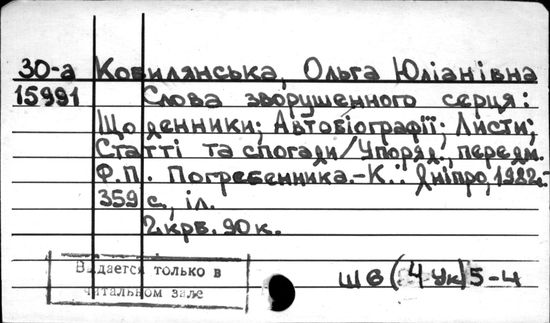 30-а Кобилянська, Ольга Юліанівна
15991 Слова зворушенного серця:
Щоденники; Автобіографії; Листи;
Статті та спогади/Упоряд., передм.
Ф.П. Погребенника.-К.: Дніпро, 1982.-
359 с., іл.
2 крб. 90 к.
Выдается только в
читальном зале
Ш6(4Ук)5-4